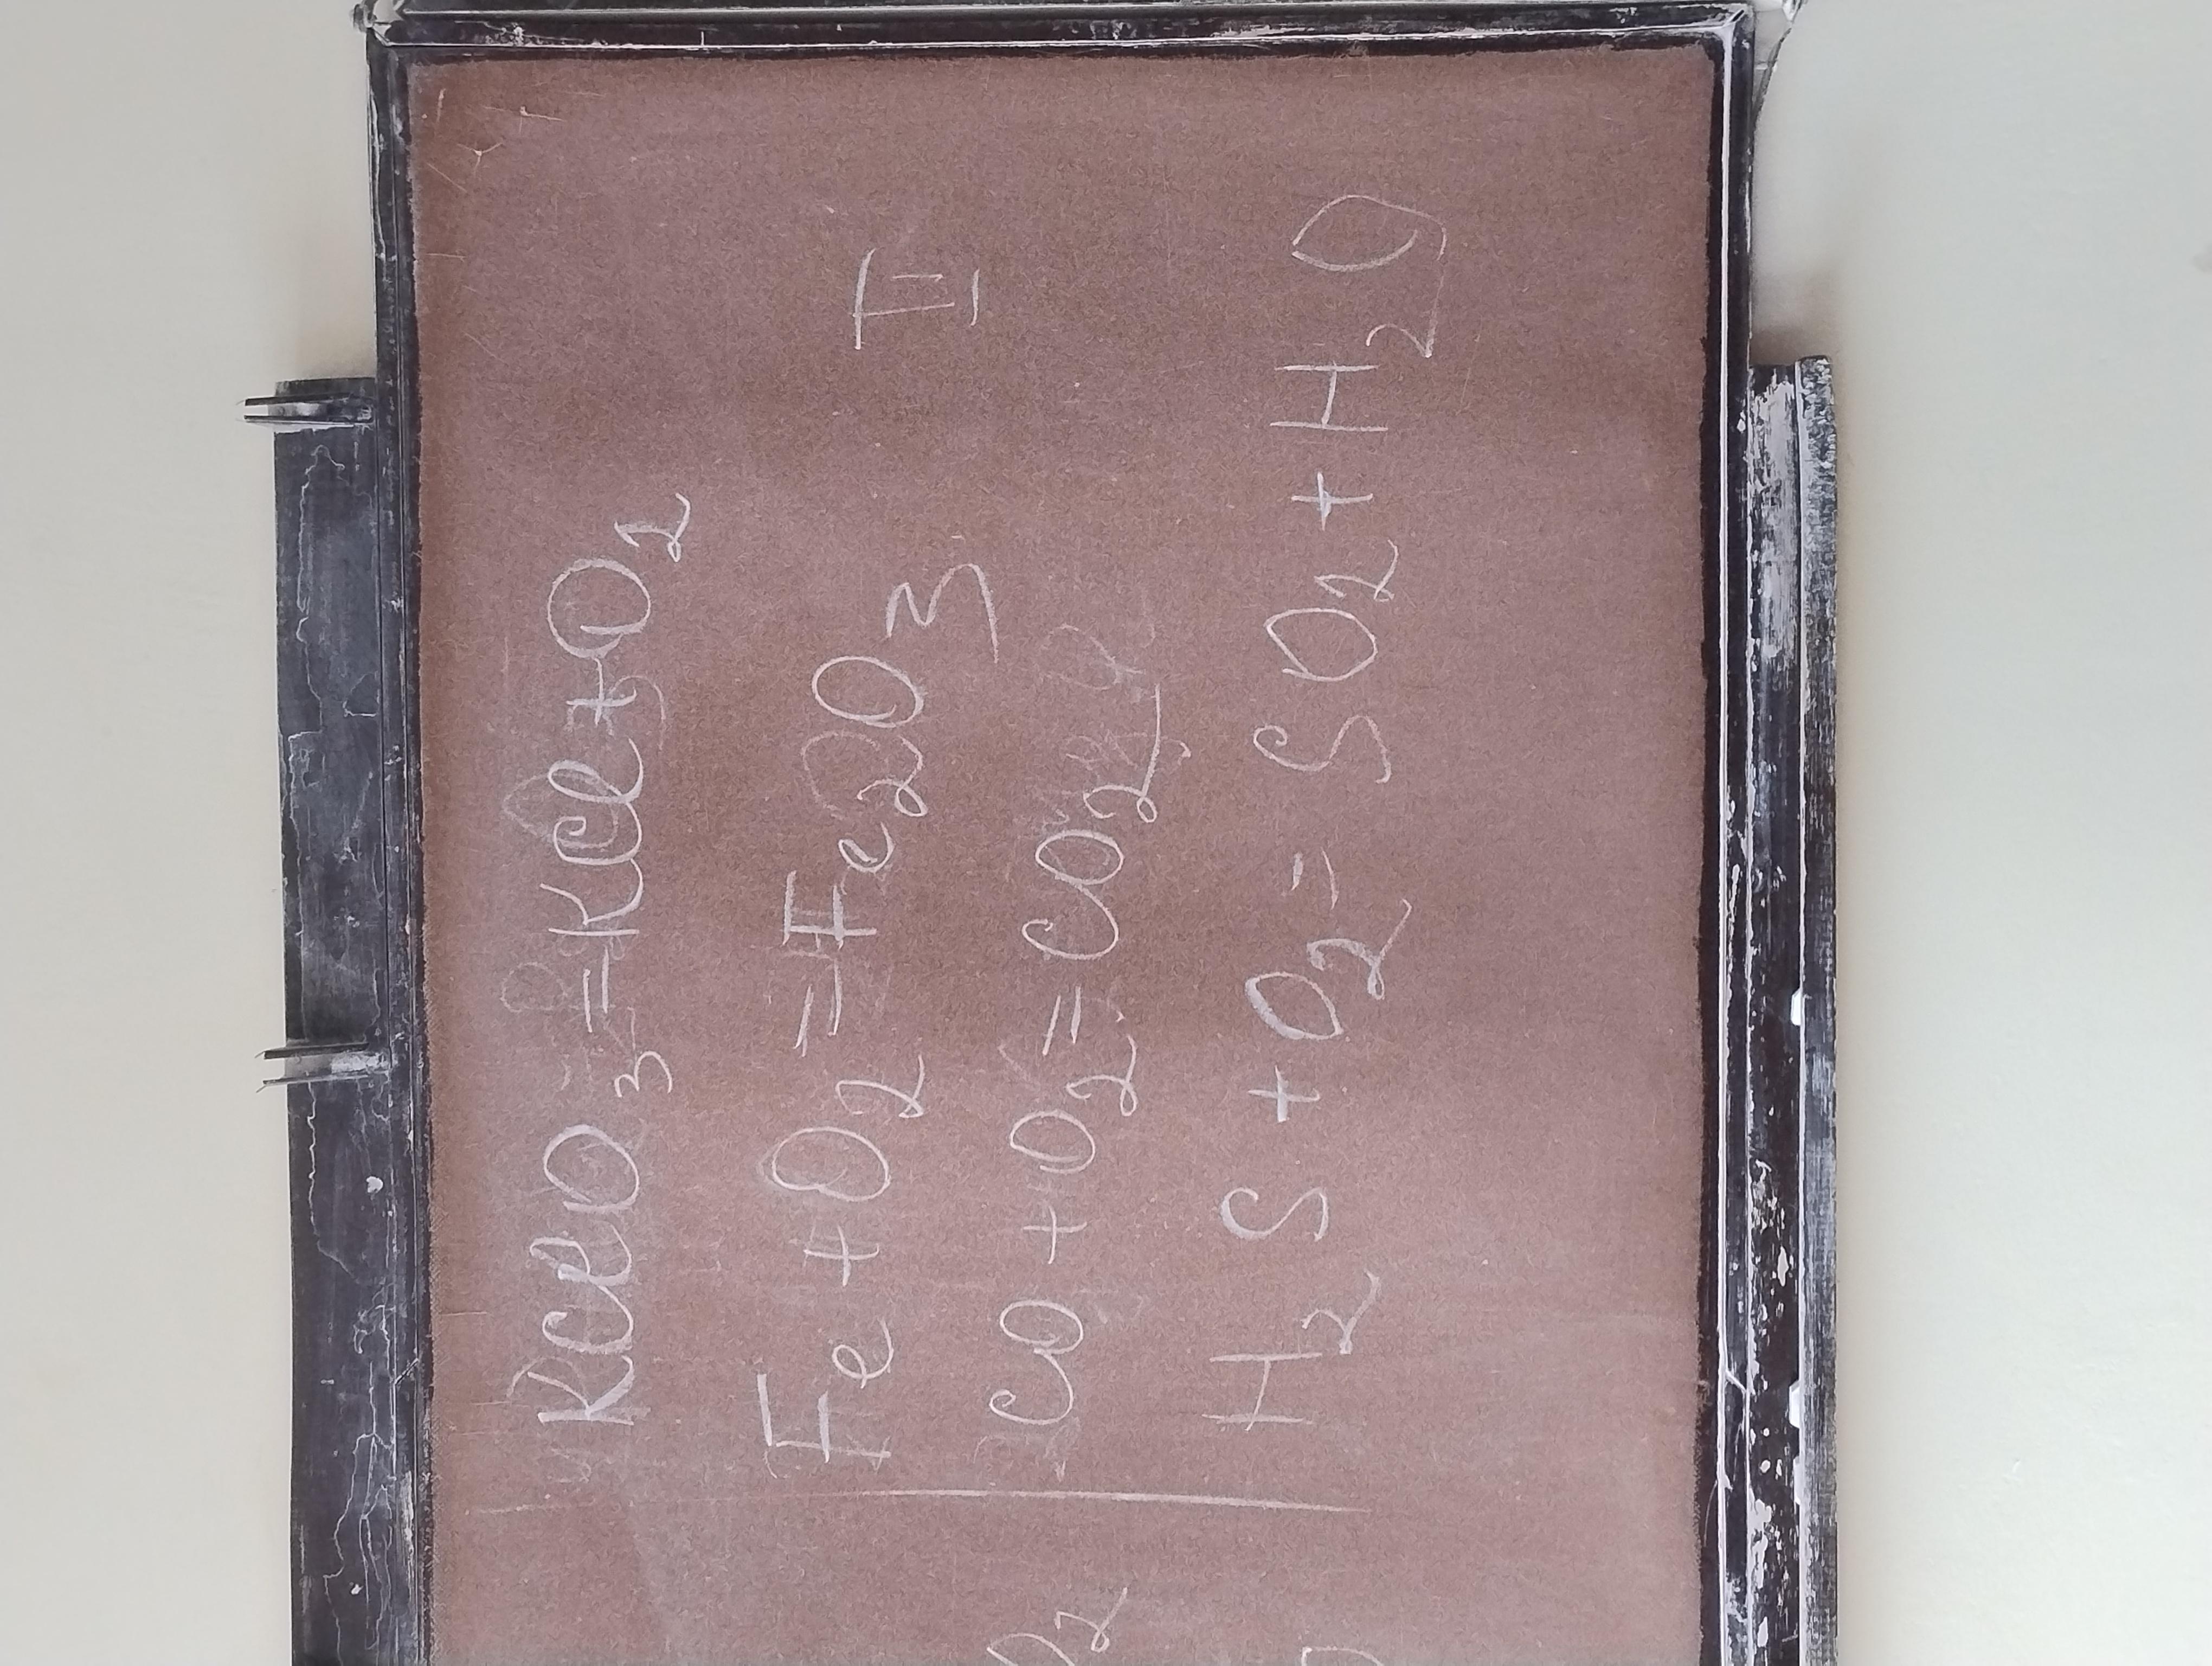 KClO₃ = KCl + O₂
Fe + O₂ = Fe₂O₃
II
CO + O₂ = CO₂
H₂S + O₂ = SO₂ + H₂O